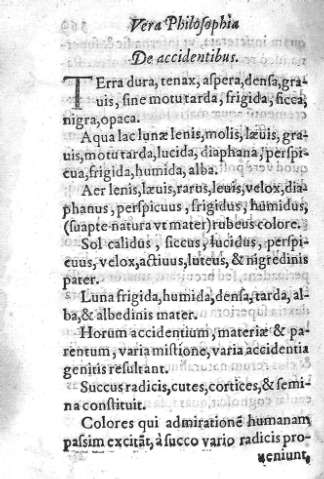 Vera Philosophia
De accidentibus.
TErra dura, tenax, aspera, densa, gra-
uis, sine motu tarda, frigida, sicca,
nigra, opaca.
Aqua lac lunæ lenis, molis, læuis, gra-
uis, motu tarda, lucida, diaphana, perspi-
cua, frigida, humida, alba.
Aer lenis, læuis, rarus, leuis, velox, dia
phanus, perspicuus, frigidus, humidus,
(suapte natura vt mater) rubeus colore.
Sol calidus, siccus, lucidus, perspi-
cuus, velox, actiuus, luteus, & nigredinis
pater.
Luna frigida, humida, densa, tarda, al-
ba, & albedinis mater.
Horum accidentium, materiæ & pa-
rentum, varia mistione, varia accidentia
genitis resultant.
Succus radicis, cutes, cortices, & semi-
na constituit.
Colores qui admirationē humanam
passim excitāt, à succo vario radicis pro-
ueniunt,